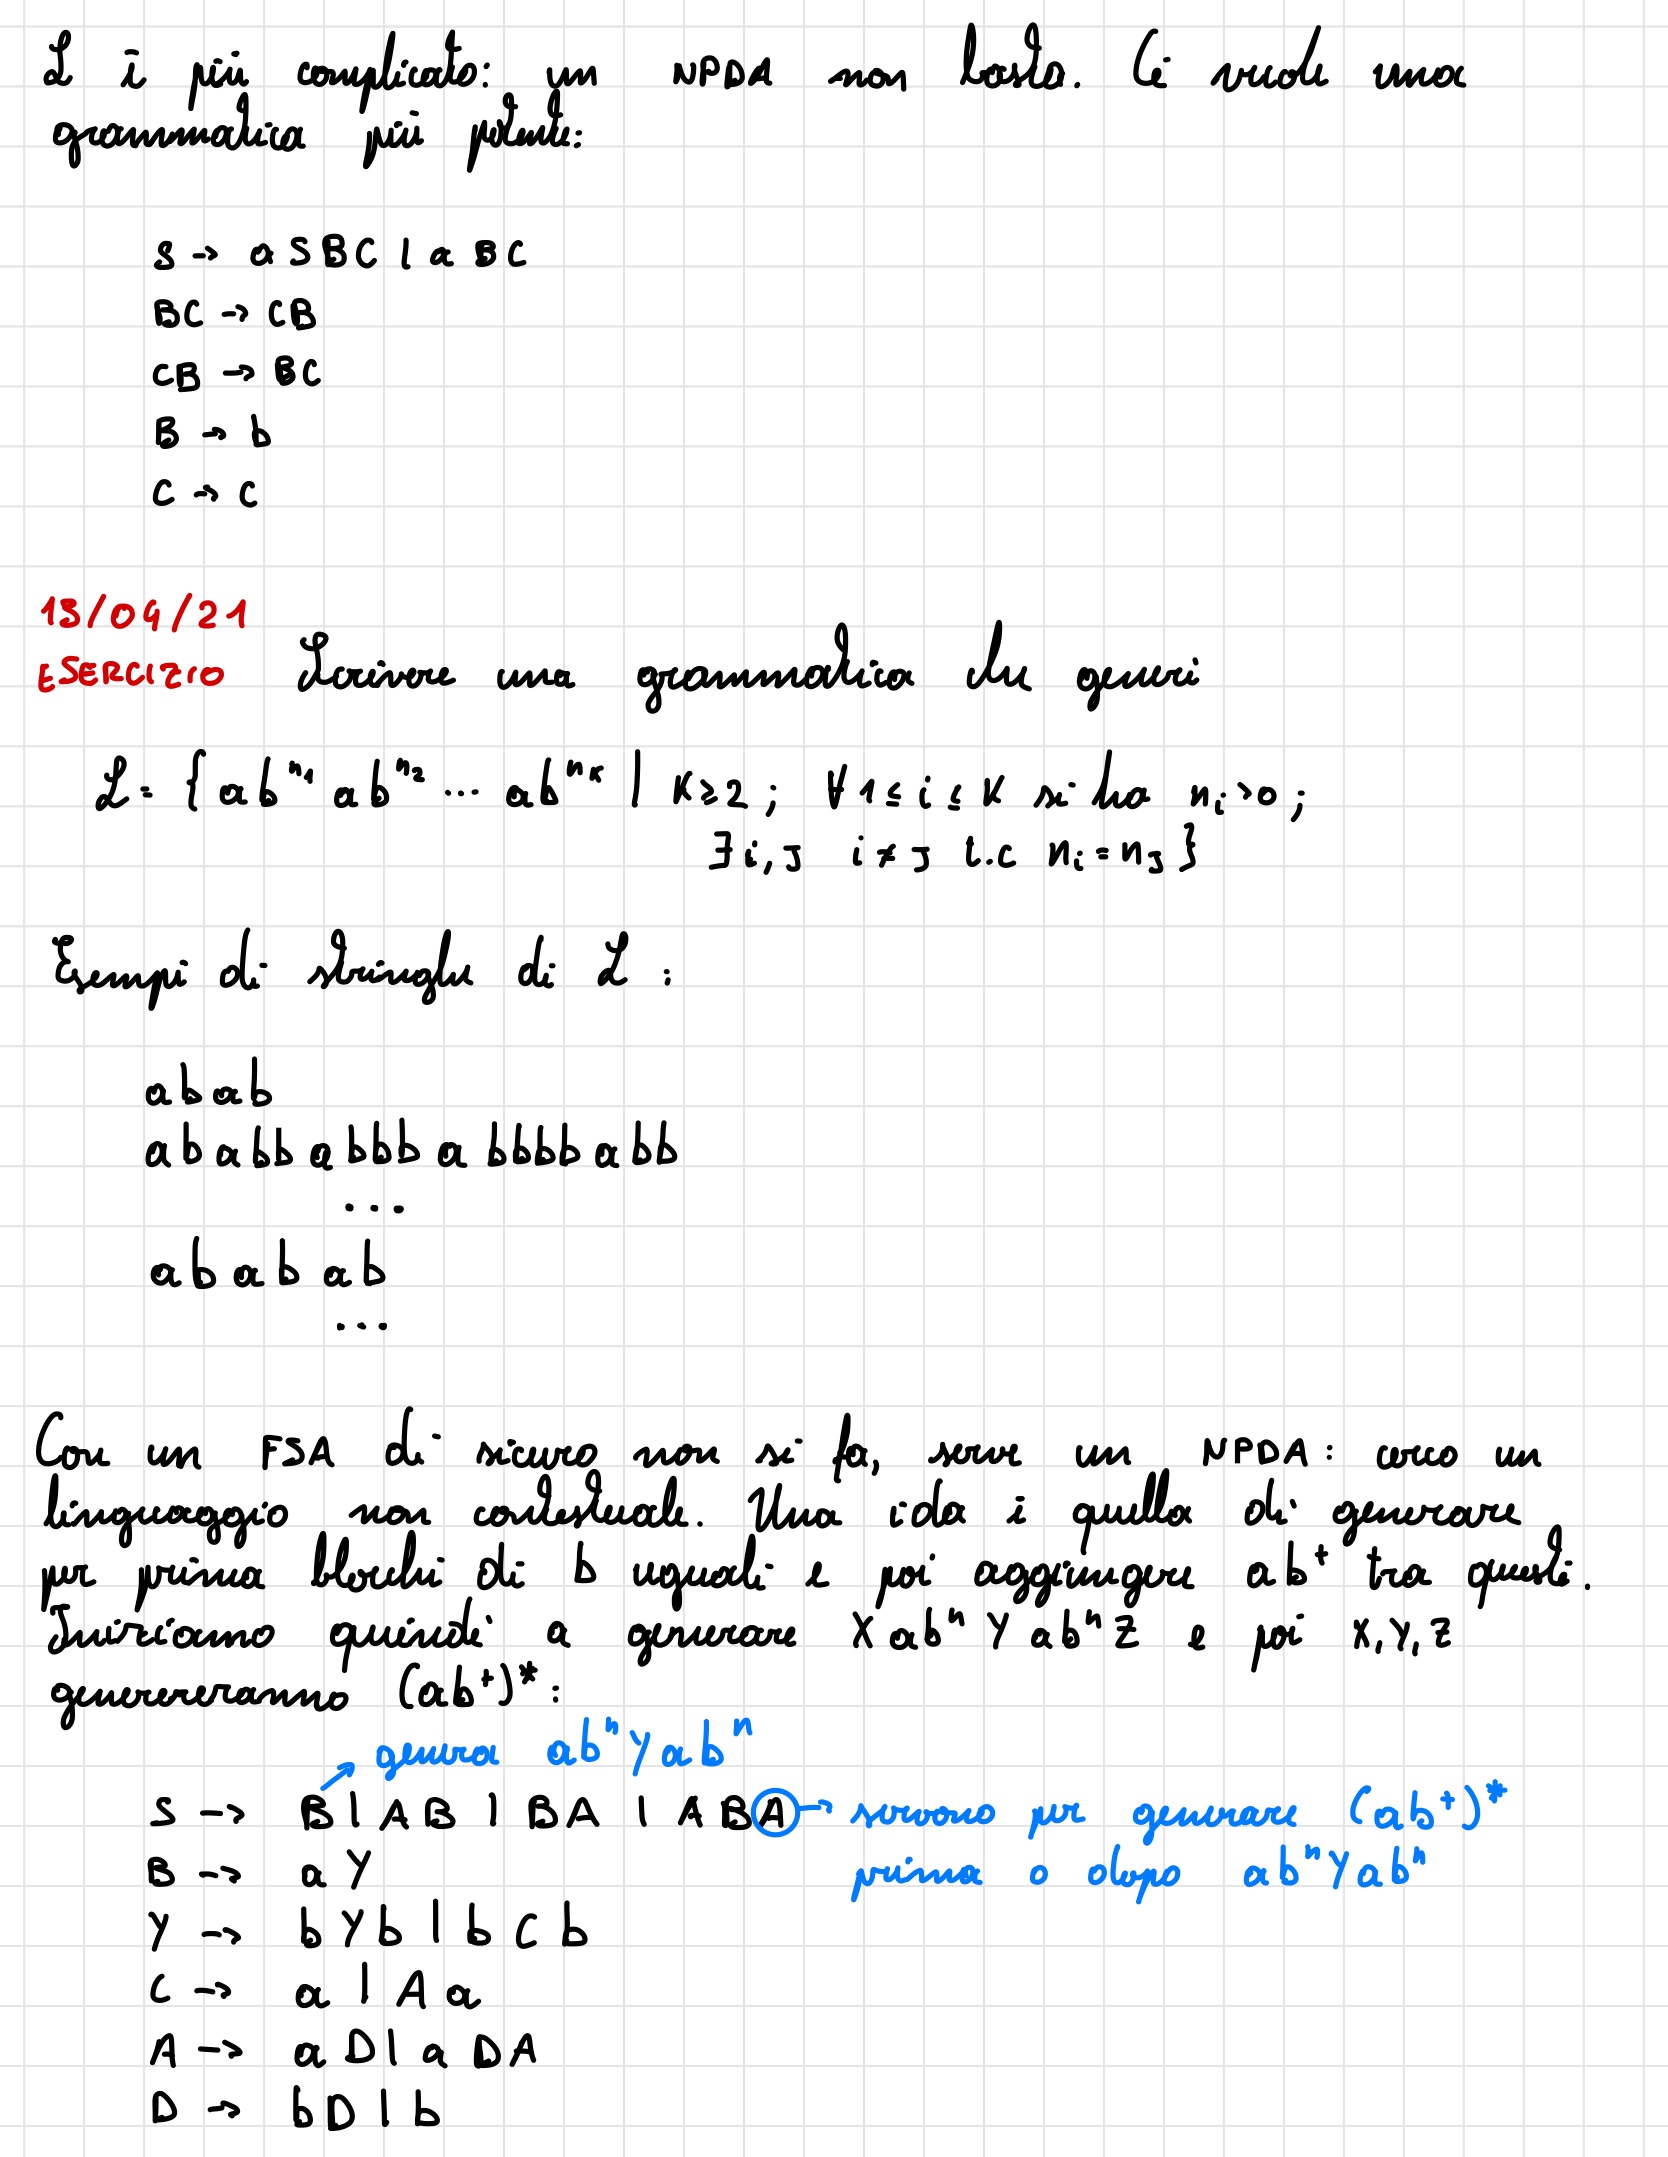 L è più complicato: un NPDA non basta. Ci vuole una
grammatica più potente:
S → aSBC | aBC
BC → CB
CB → BC
B → b
C → c
13/04/21
ESERCIZIO Scrivere una grammatica che generi
L = { ab^n₁ ab^n₂ ... ab^nₖ | K≥2 ; ∀ 1≤i≤K si ha nᵢ>0 ;
∃ i,J i≠J t.c nᵢ=n_J }
Esempi di stringhe di L :
abab
ababbabbbabbbbabb
...
ababab
...
Con un FSA di sicuro non si fa, serve un NPDA : cerco un
linguaggio non contestuale. Una idea è quella di generare
per prima blocchi di b uguali e poi aggiungere ab⁺ tra questi.
Iniziamo quindi a generare Xabⁿ Y abⁿ Z e poi X,Y,Z
generereranno (ab⁺)* :
genera abⁿYabⁿ
S → B | AB | BA | ABA → servono per generare (ab⁺)*
B → aY prima o dopo abⁿYabⁿ
Y → bYb | bCb
C → a | Aa
A → aD | aDA
D → bD | b